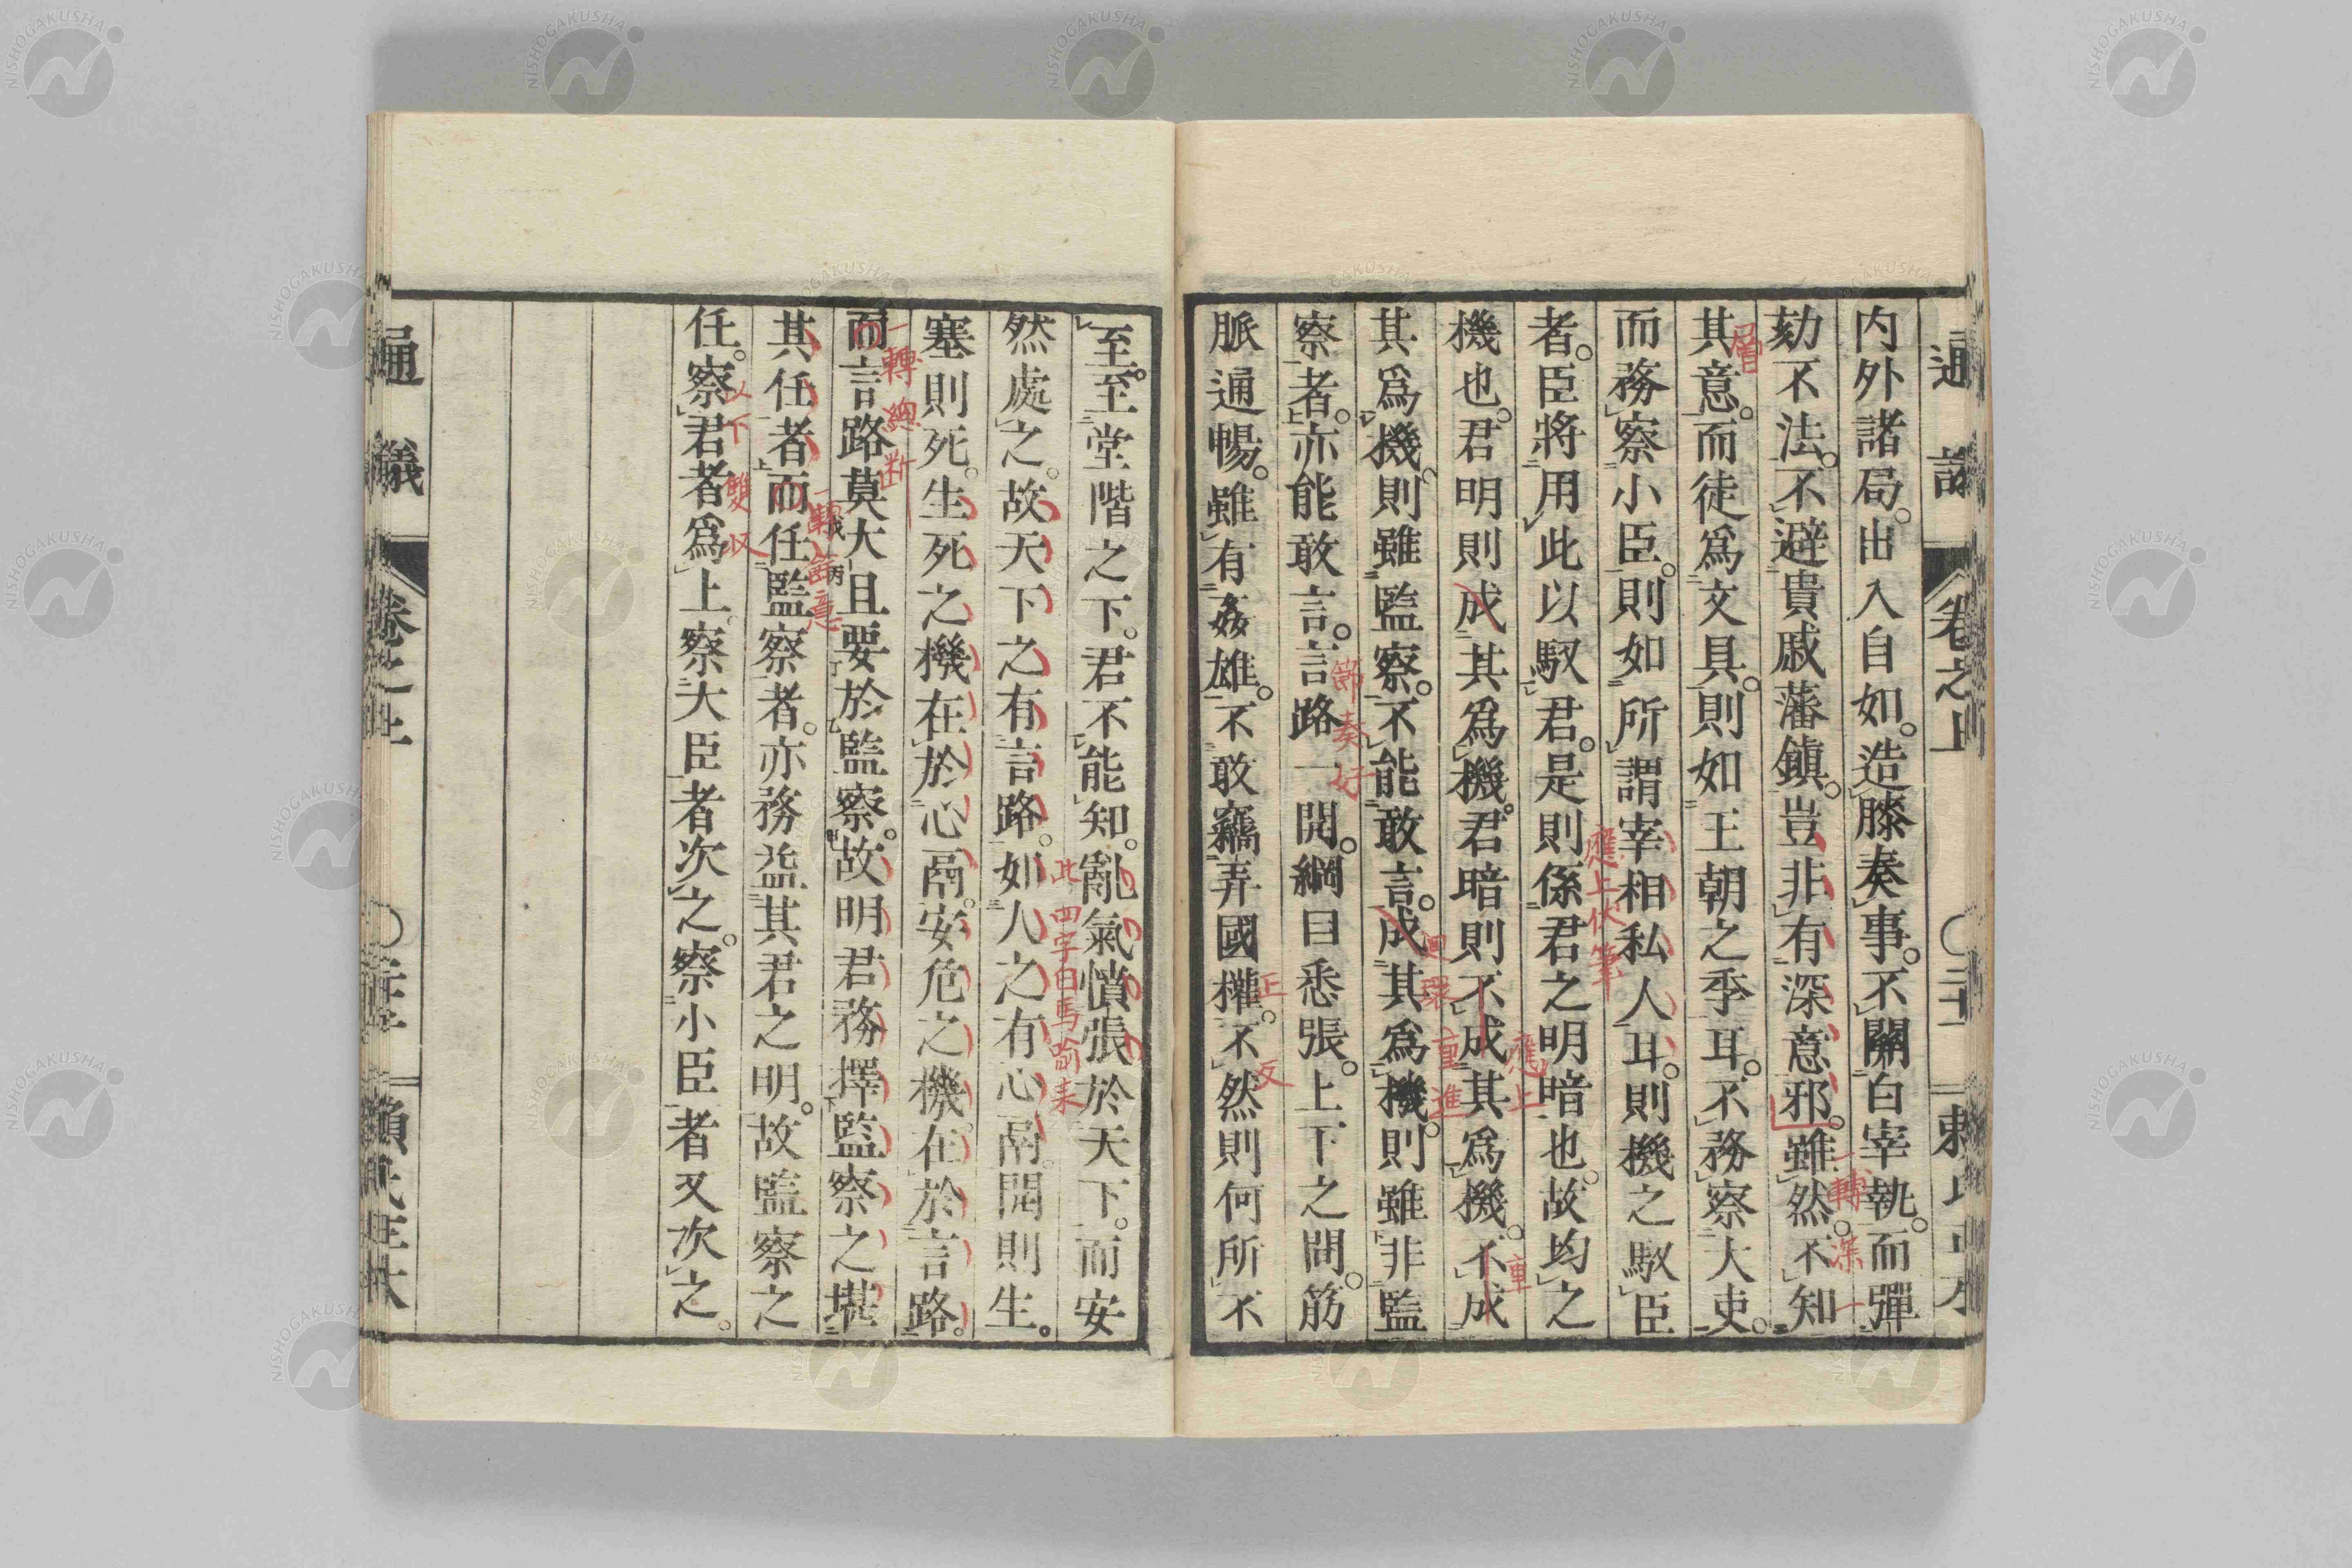 内外諸局。出入自如。造膝奏事。不關白宰執。而彈
劾不法。不避貴戚藩鎮。豈非有深意邪。雖然。不知
其意。而徒爲文具。則如王朝之季耳。不務察大吏。
而務察小臣。則如所謂宰相私人耳。則機之馭臣
者。臣將用此以馭君。是則係君之明暗也。故均之
機也。君明則成其爲機。君暗則不成其爲機。不成
其爲機。則雖監察。不能敢言。成其爲機。則雖非監
察者。亦能敢言。言路一開。綱目悉張。上下之間。筋
脈通暢。雖有姦雄。不敢竊弄國權。不然則何所不
至。至堂階之下。君不能知。亂氣憤張於天下。而安
然處之。故天下之有言路。如人之有心鬲。開則生。
塞則死。生死之機在於心鬲。安危之機。在於言路。
而言路莫大且要於監察。故明君務擇監察之堪
其任者。而任監察者。亦務益其君之明。故監察之
任。察君者爲上。察大臣者次之。察小臣者又次之。
通議
卷之上
層
一轉深一
應上伏筆
應上
重
回環重進
節奏好
正
反
此四字自馬喻来
一轉總断
一轉篇意
以下雙収
NISHOGAKUSHA